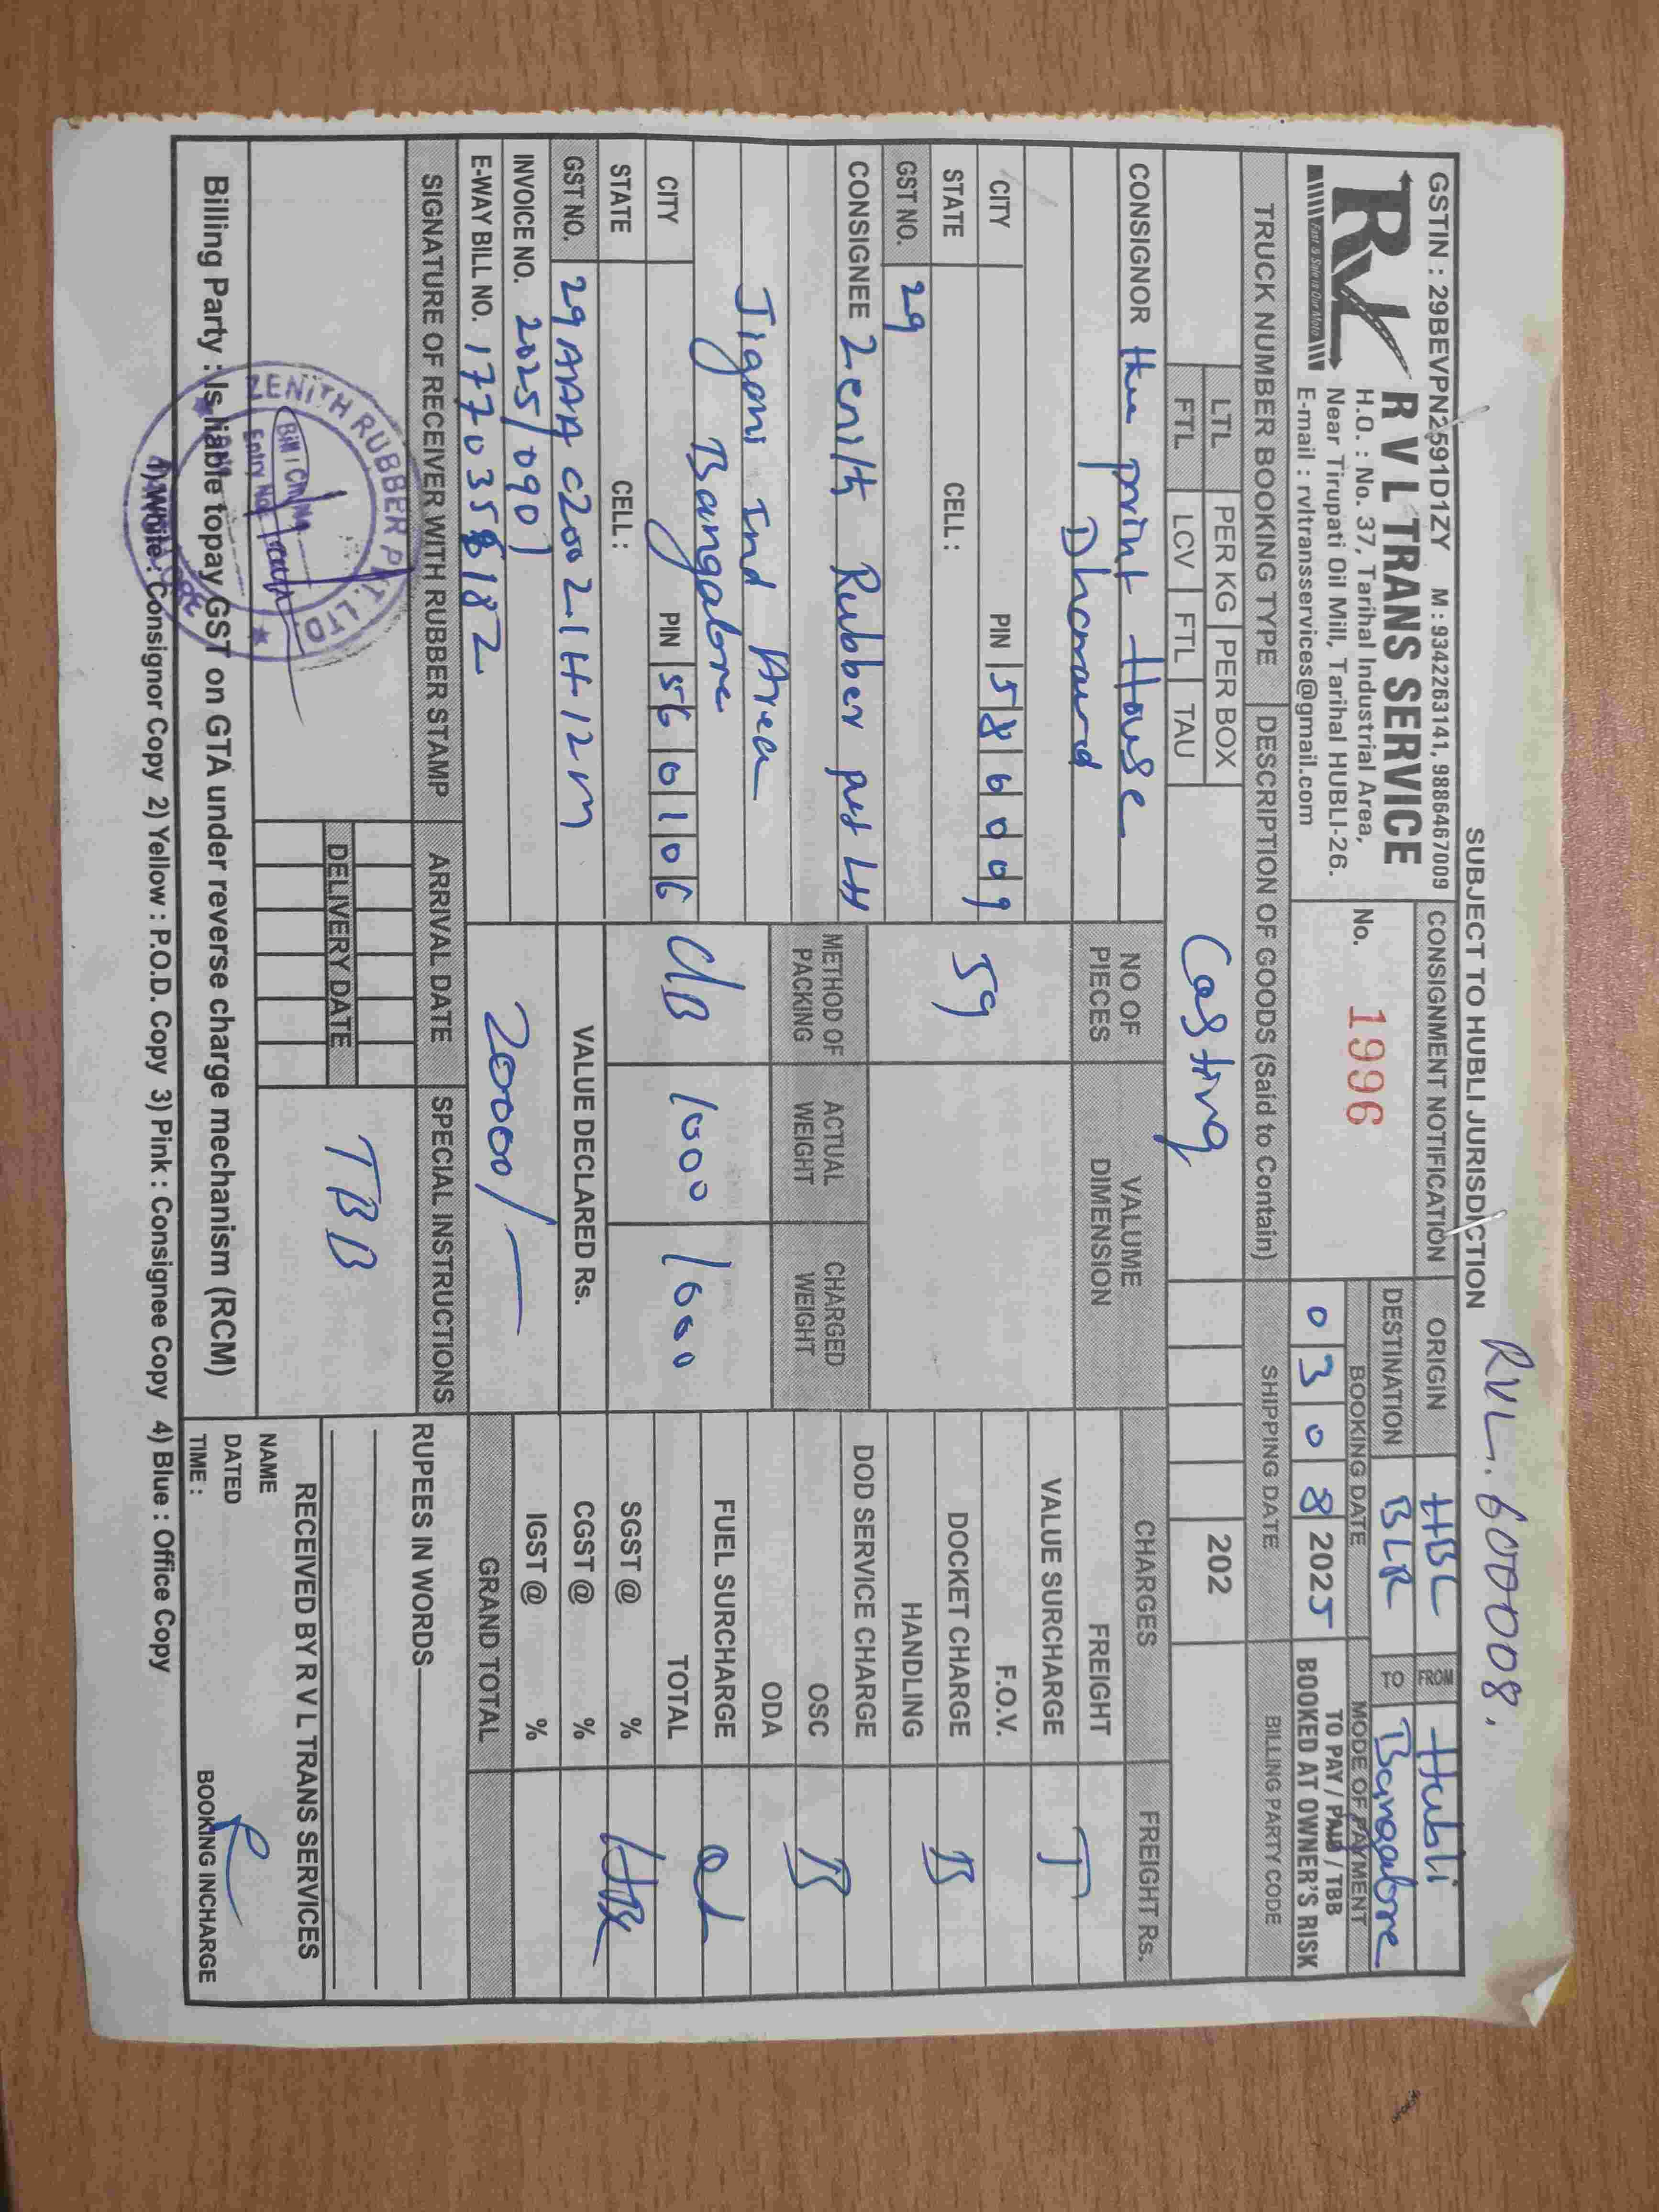 SUBJECT TO HUBLI JURISDICTION
RVL. 600008.
GSTIN : 29BEVPN2591D1ZY M : 9342263141, 9886467009
RVL
Fast & Safe is Our Moto
R V L TRANS SERVICE
H.O. : No. 37, Tarihal Industrial Area,
Near Tirupati Oil Mill, Tarihal HUBLI-26.
E-mail : rvltransservices@gmail.com
CONSIGNMENT NOTIFICATION
No. 1996
ORIGIN HBL FROM Hubli
DESTINATION BLR TO Bangalore
BOOKING DATE MODE OF PAYMENT
03 08 2025 TO PAY / PAID / TBB
BOOKED AT OWNER'S RISK
TRUCK NUMBER BOOKING TYPE DESCRIPTION OF GOODS (Said to Contain) SHIPPING DATE BILLING PARTY CODE
LTL PER KG PER BOX
FTL LCV FTL TAU
Casting
202
CONSIGNOR the print House
Dharward
CITY PIN 580009
STATE CELL :
GST NO. 29
CONSIGNEE Zenith Rubber pvt Ltd
Jigani Ind Area
Bangalore
CITY PIN 560106
STATE CELL :
GST NO. 29AAACZ0021H1ZM
INVOICE NO. 2025/0901
E-WAY BILL NO.
NO OF PIECES VALUME DIMENSION
59
METHOD OF PACKING ACTUAL WEIGHT CHARGED WEIGHT
C/B 1000 1000
VALUE DECLARED Rs.
20000/-
CHARGES FREIGHT Rs.
FREIGHT
VALUE SURCHARGE T
F.O.V.
DOCKET CHARGE B
HANDLING
DOD SERVICE CHARGE
OSC B
ODA
FUEL SURCHARGE at
TOTAL
SGST @ % HBL
CGST @ %
IGST @ %
GRAND TOTAL
SIGNATURE OF RECEIVER WITH RUBBER STAMP ARRIVAL DATE SPECIAL INSTRUCTIONS
DELIVERY DATE
TBB
ZENITH RUBBER PVT. LTD
Entry No.
RUPEES IN WORDS
RECEIVED BY R V L TRANS SERVICES
NAME
DATED
TIME :
BOOKING INCHARGE
Billing Party : Is liable topay GST on GTA under reverse charge mechanism (RCM)
1) White : Consignor Copy 2) Yellow : P.O.D. Copy 3) Pink : Consignee Copy 4) Blue : Office Copy